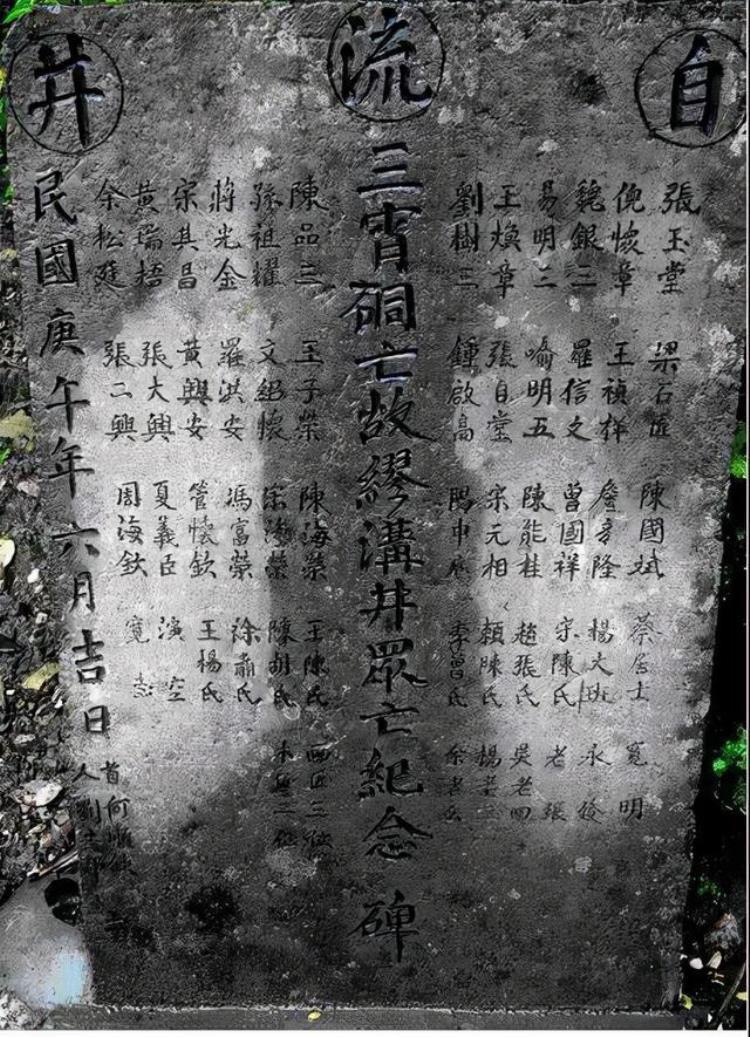 自流井
張玉堂 梁石匠 陳國斌 蔡居士 寬明
倪懷章 王禎祥 詹孝隆 楊大 永
魏銀二 羅信之 曾國祥 宋陳氏 老張
易明三 喻明五 陳能桂 趙張氏 吳老四
王煥章 張自堂 宋元相 賴陳氏 楊老三
劉樹三 鍾啟高 申 李曾氏 余老
三宵硐亡故繆溝井眾亡紀念碑
陳品三 王子榮 陳海榮 王陳氏 西匠三位
孫祖耀 文紹懷 宋海榮 陳胡氏 木匠二位
蔣光金 羅洪安 馮富榮 徐蕭氏
宋其昌 黃興安 管懷欽 王楊氏
黃瑞梧 張大興 夏義臣 演空
余松廷 張二興 周海欽 寬
民國庚午年六月吉日
首人 何 劉